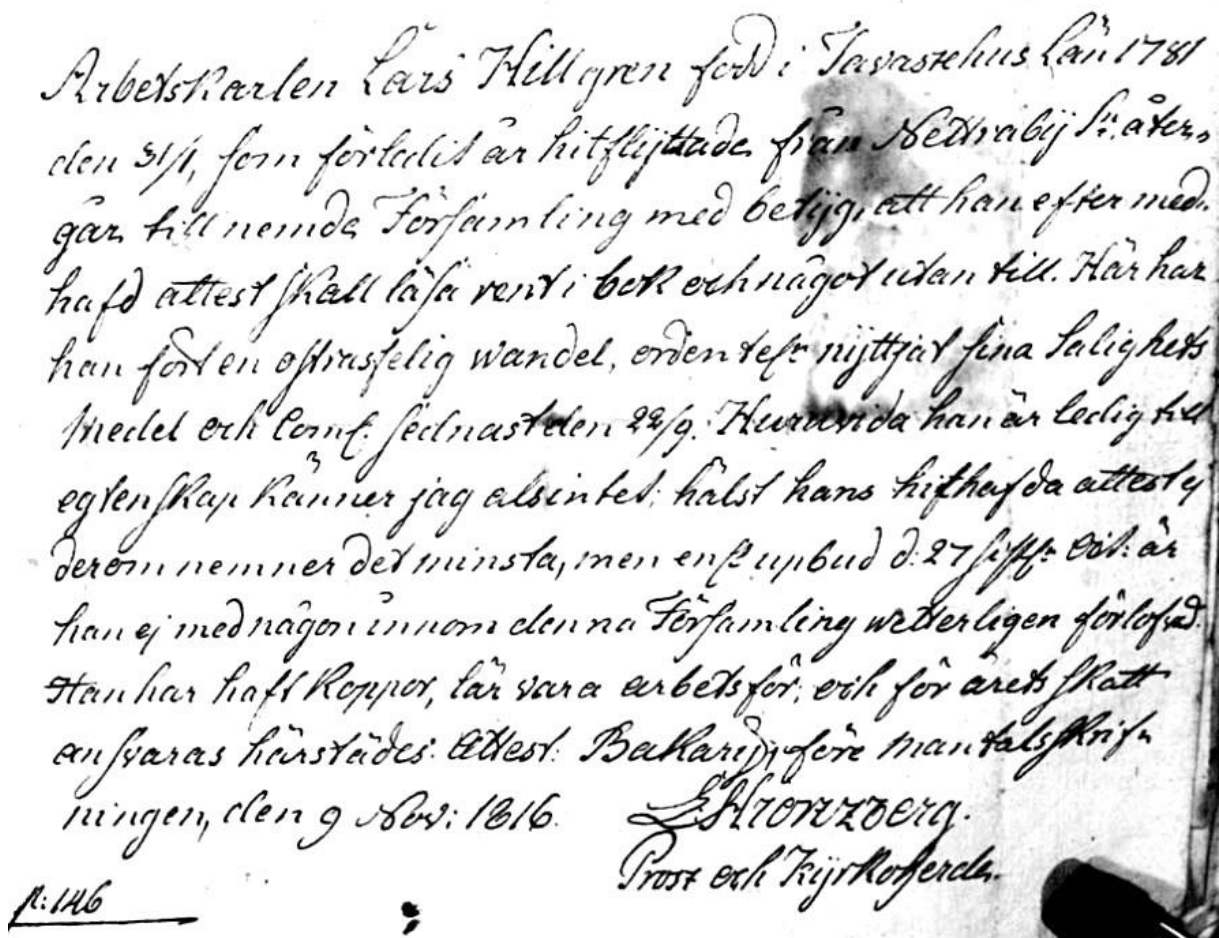 Arbetskarlen Lars Hillgren född i Tavastehus Län 1781
den 31/1, som förledit år hitflyttade från Nettraby Sn. åter-
går till nemde Församling med betyg, att han efter med-
hafd attest skall läsa rent i bok och något utan till. Här har
han fört en ostraffelig wandel, ordentel. nyttjat sina Salighets
Medel och Com̃. sednast den 22/9. Huruvida han är ledig till
egtenskap känner jag alsintet; hälst hans hithafda attest ej
derom nemner det minsta, men upbud d: 27 Oct: är
han ej med någon innom denna Församling wetterligen förlofvad.
Han har haft Koppor, lär vara arbetsför, och för årets skatt
ansvaras härstädes. Attest: före Mantalsskrif-
ningen, den 9 Nov: 1816.
Prost och Kyrkoherde.
N: 146